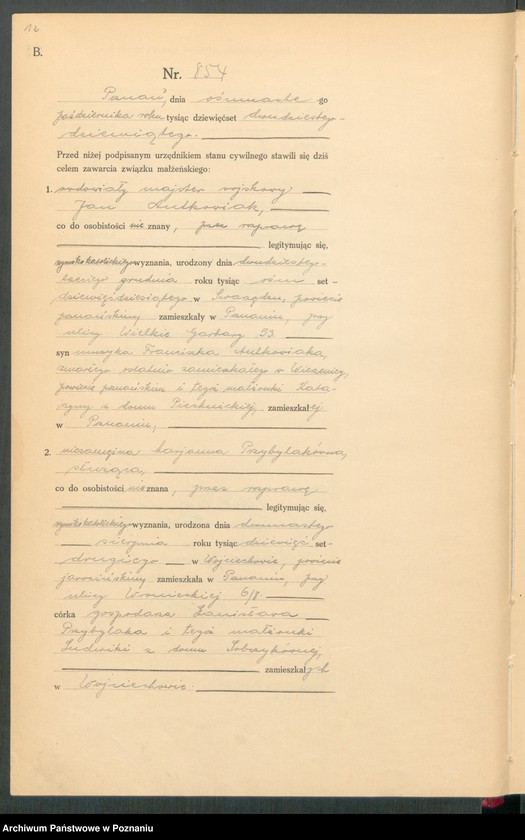 12
B.
Nr. 854
Poznań, dnia osiemnaste go
października roku tysiąc dziewięćset dwudziestego-
dziewiątego.
Przed niżej podpisanym urzędnikiem stanu cywilnego stawili się dziś
celem zawarcia związku małżeńskiego:
1. zawodowy majster wojskowy
Jan Antkowiak,
co do osobistości nie znany,
legitymując się,
rzymsko katolickiego wyznania, urodzony dnia dwudziestego-
grudnia roku tysiąc ośm set-
dziewięćdziesiątego w powiecie
poznańskim, zamieszkały w Poznaniu, przy
ulicy Wielkie Garbary 53
syn muzyka Franciszka Antkowiaka,
zmarłego ostatnio zamieszkałego w
powiecie poznańskim i tegoż małżonki Kata-
rzyny z domu zamieszkałej
w Poznaniu,
2. niezamężna Marjanna Przybylakówna,
służąca,
co do osobistości nieznana,
legitymując się,
rzymsko katolickiego wyznania, urodzona dnia
sierpnia roku tysiąc dziewięć set-
drugiego w Wojciechowie, powiecie
jarocińskim zamieszkała w Poznaniu, przy
ulicy Wronieckiej 6/8.
córka gospodarza Stanisława
Przybylaka i tegoż małżonki
Ludwiki z domu
zamieszkałych
w Wojciechowie.
Archiwum Państwowe w Poznaniu